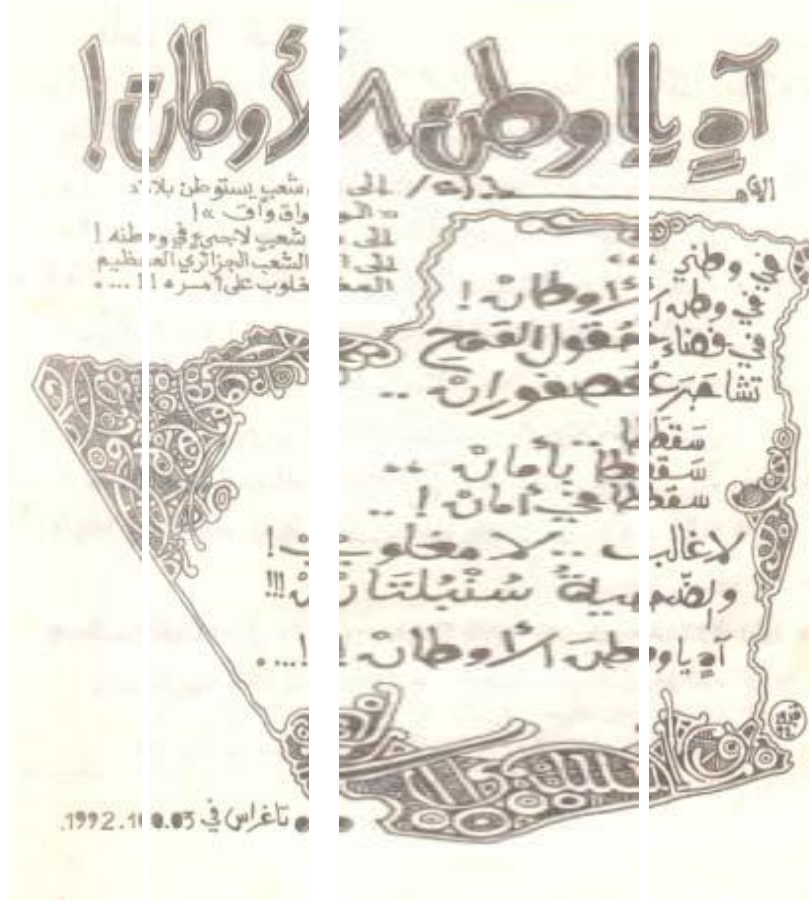 آهٍ يا وطن الأوطان!
إلى شعب يستوطن بلاد
واق واق»!
إلى شعب لاجئ في وطنه!
إلى الشعب الجزائري العظيم
المغلوب على أمره!! ...
في وطني ..
في وطن الأوطان!
في فضاء حقول القمح
تشاجر عصفوران ..
سقطا ..
سقطا بأمان ..
سقطا في أمان! ..
لا غالب .. لا مغلوب!
والضحيةُ سُنْبُلَتَانْ!!!
آهٍ يا وطن الأوطان! !...
تاغراس في 03.10.1992.